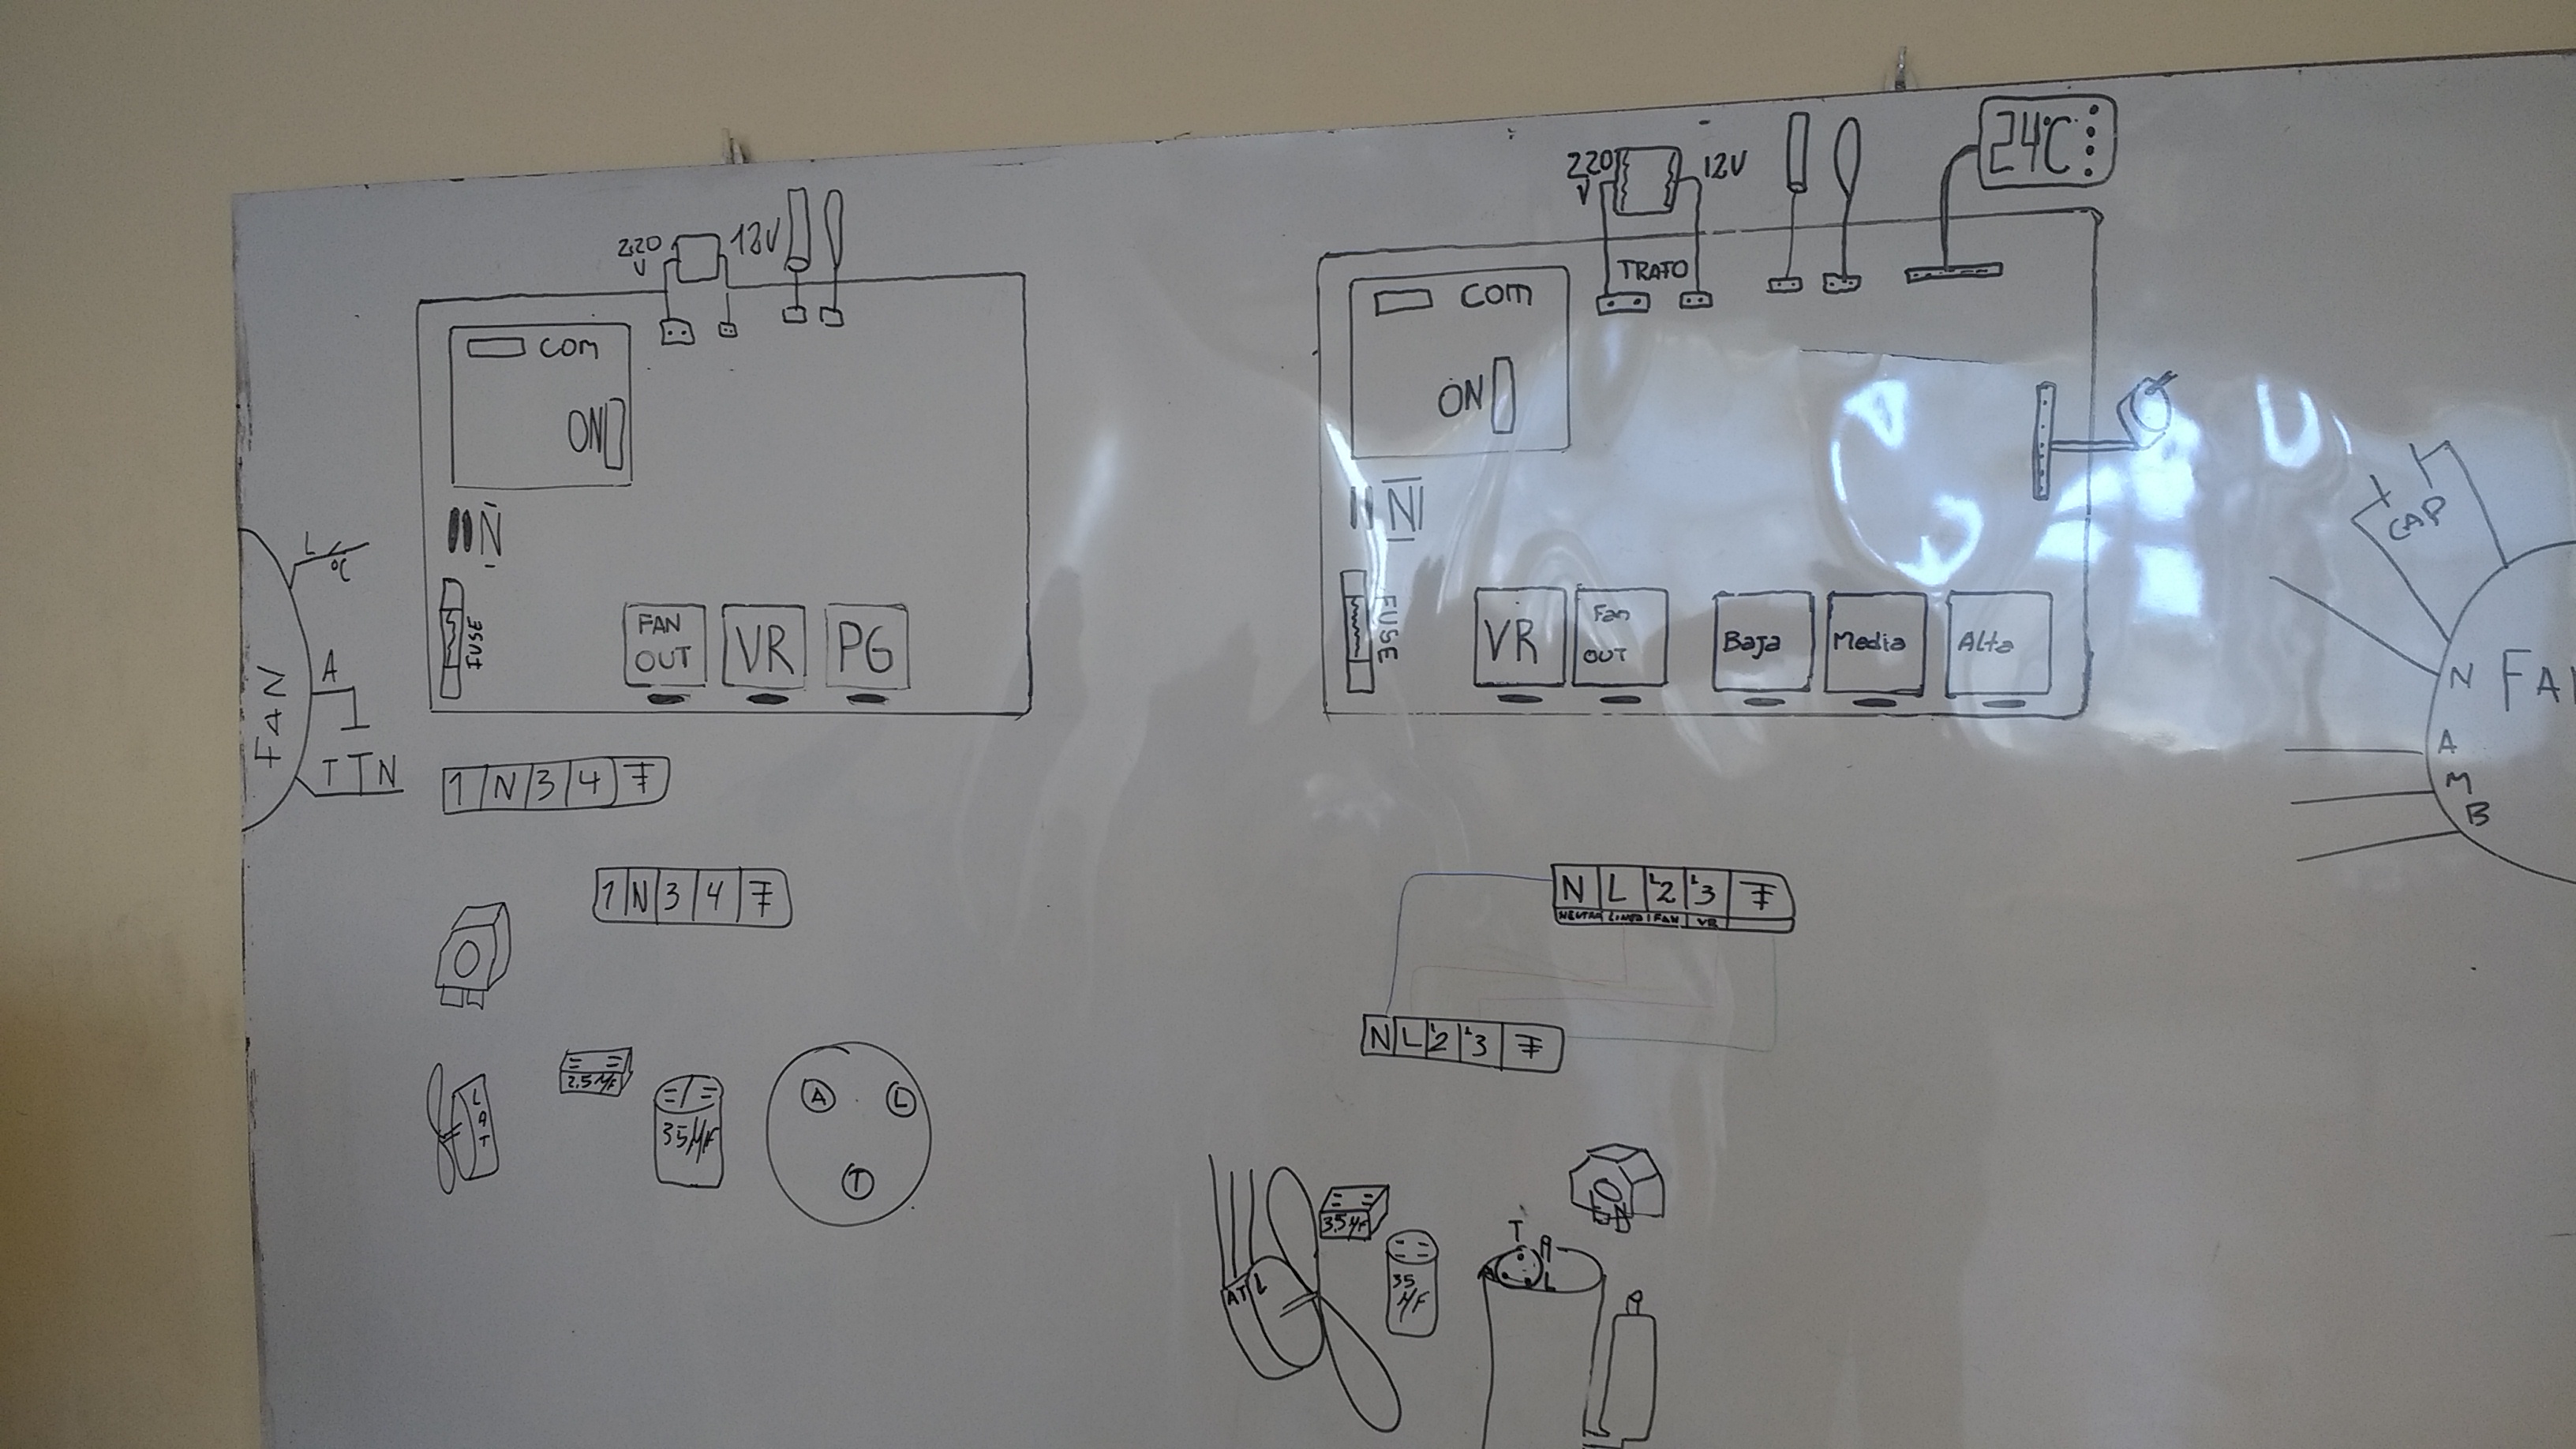 220
V
12V
COM
ON
N
FUSE
FAN
OUT
VR
PG
FAN
L
A
T
N
1 N 3 4
1 N 3 4
L
A
T
2.5 µF
35 µF
A
L
T
220
V
12V
TRAFO
24°C
COM
ON
N
FUSE
VR
Fan
OUT
Baja
Media
Alta
CAP
N
A
M
B
N L L2 L3
NEUTRO LINEA FAN VR
N L L2 L3
A T L
3.5 µF
35
µF
T
A
L